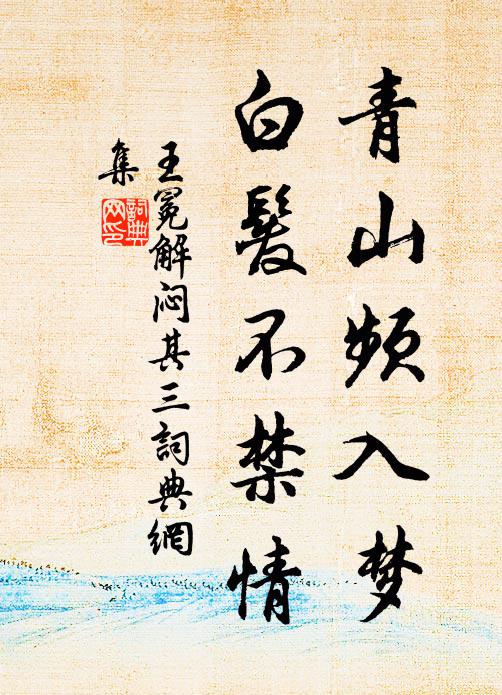 青山频入梦
白髮不禁情
王冕解闷其三詞典網
集
詞典网印